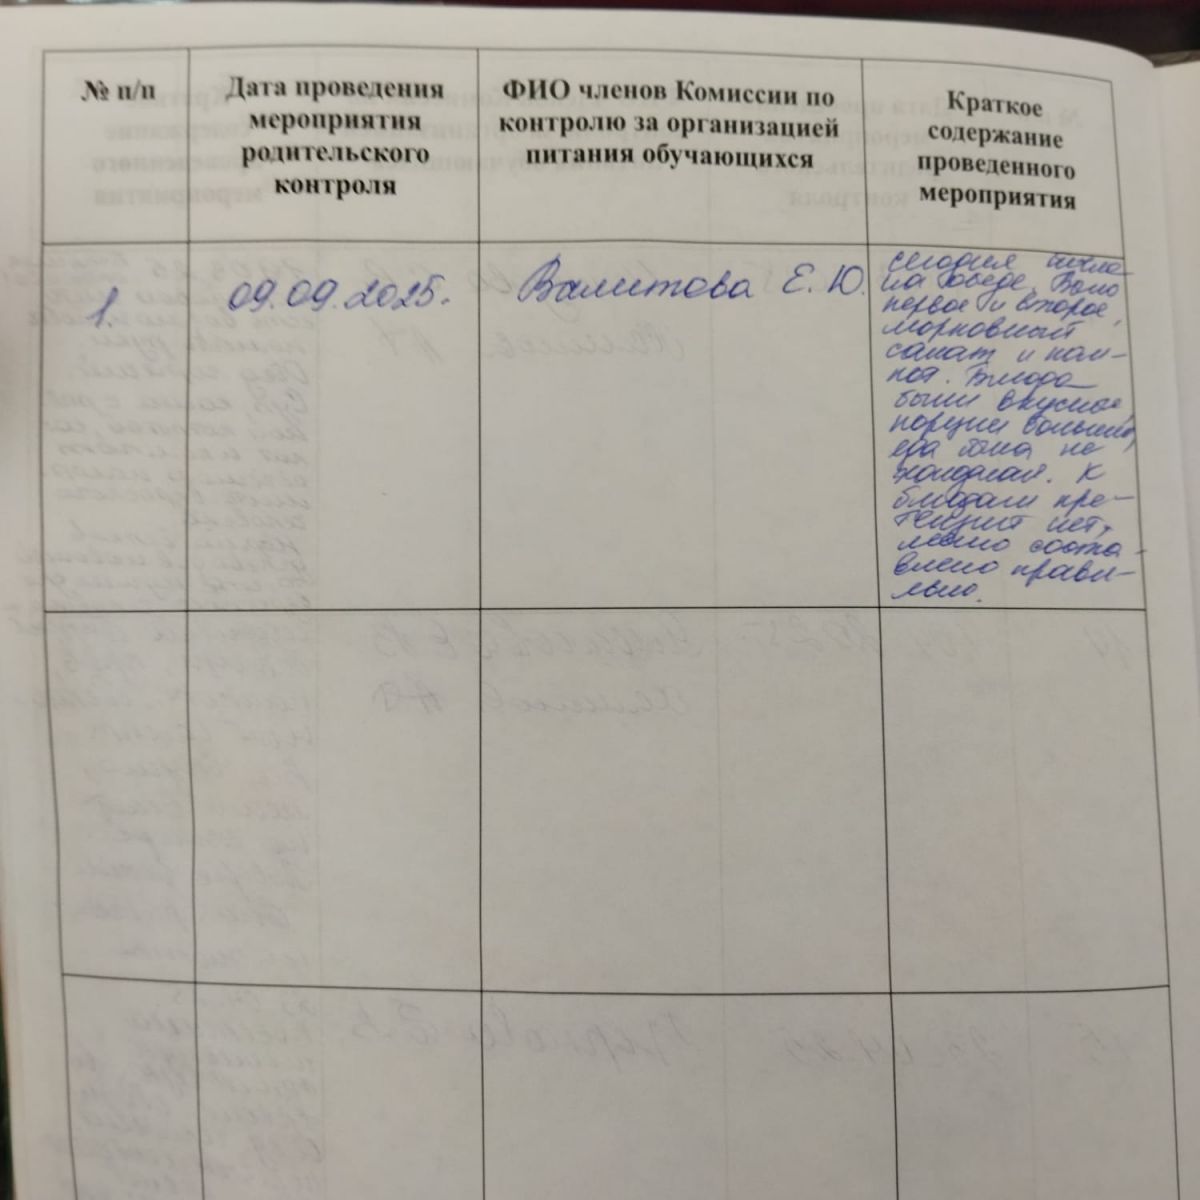 № п/п
Дата проведения
мероприятия
родительского
контроля
ФИО членов Комиссии по
контролю за организацией
питания обучающихся
Краткое
содержание
проведенного
мероприятия
1.
09.09.2025.
Валитова Е. Ю.
сегодня была
на обеде. Было
первое и второе,
морковный
салат и ком-
пот. Блюда
были вкусные,
порции большие,
еда была не
холодная. К
блюдам пре-
тензит нет,
меню соста-
влено прави-
льно.